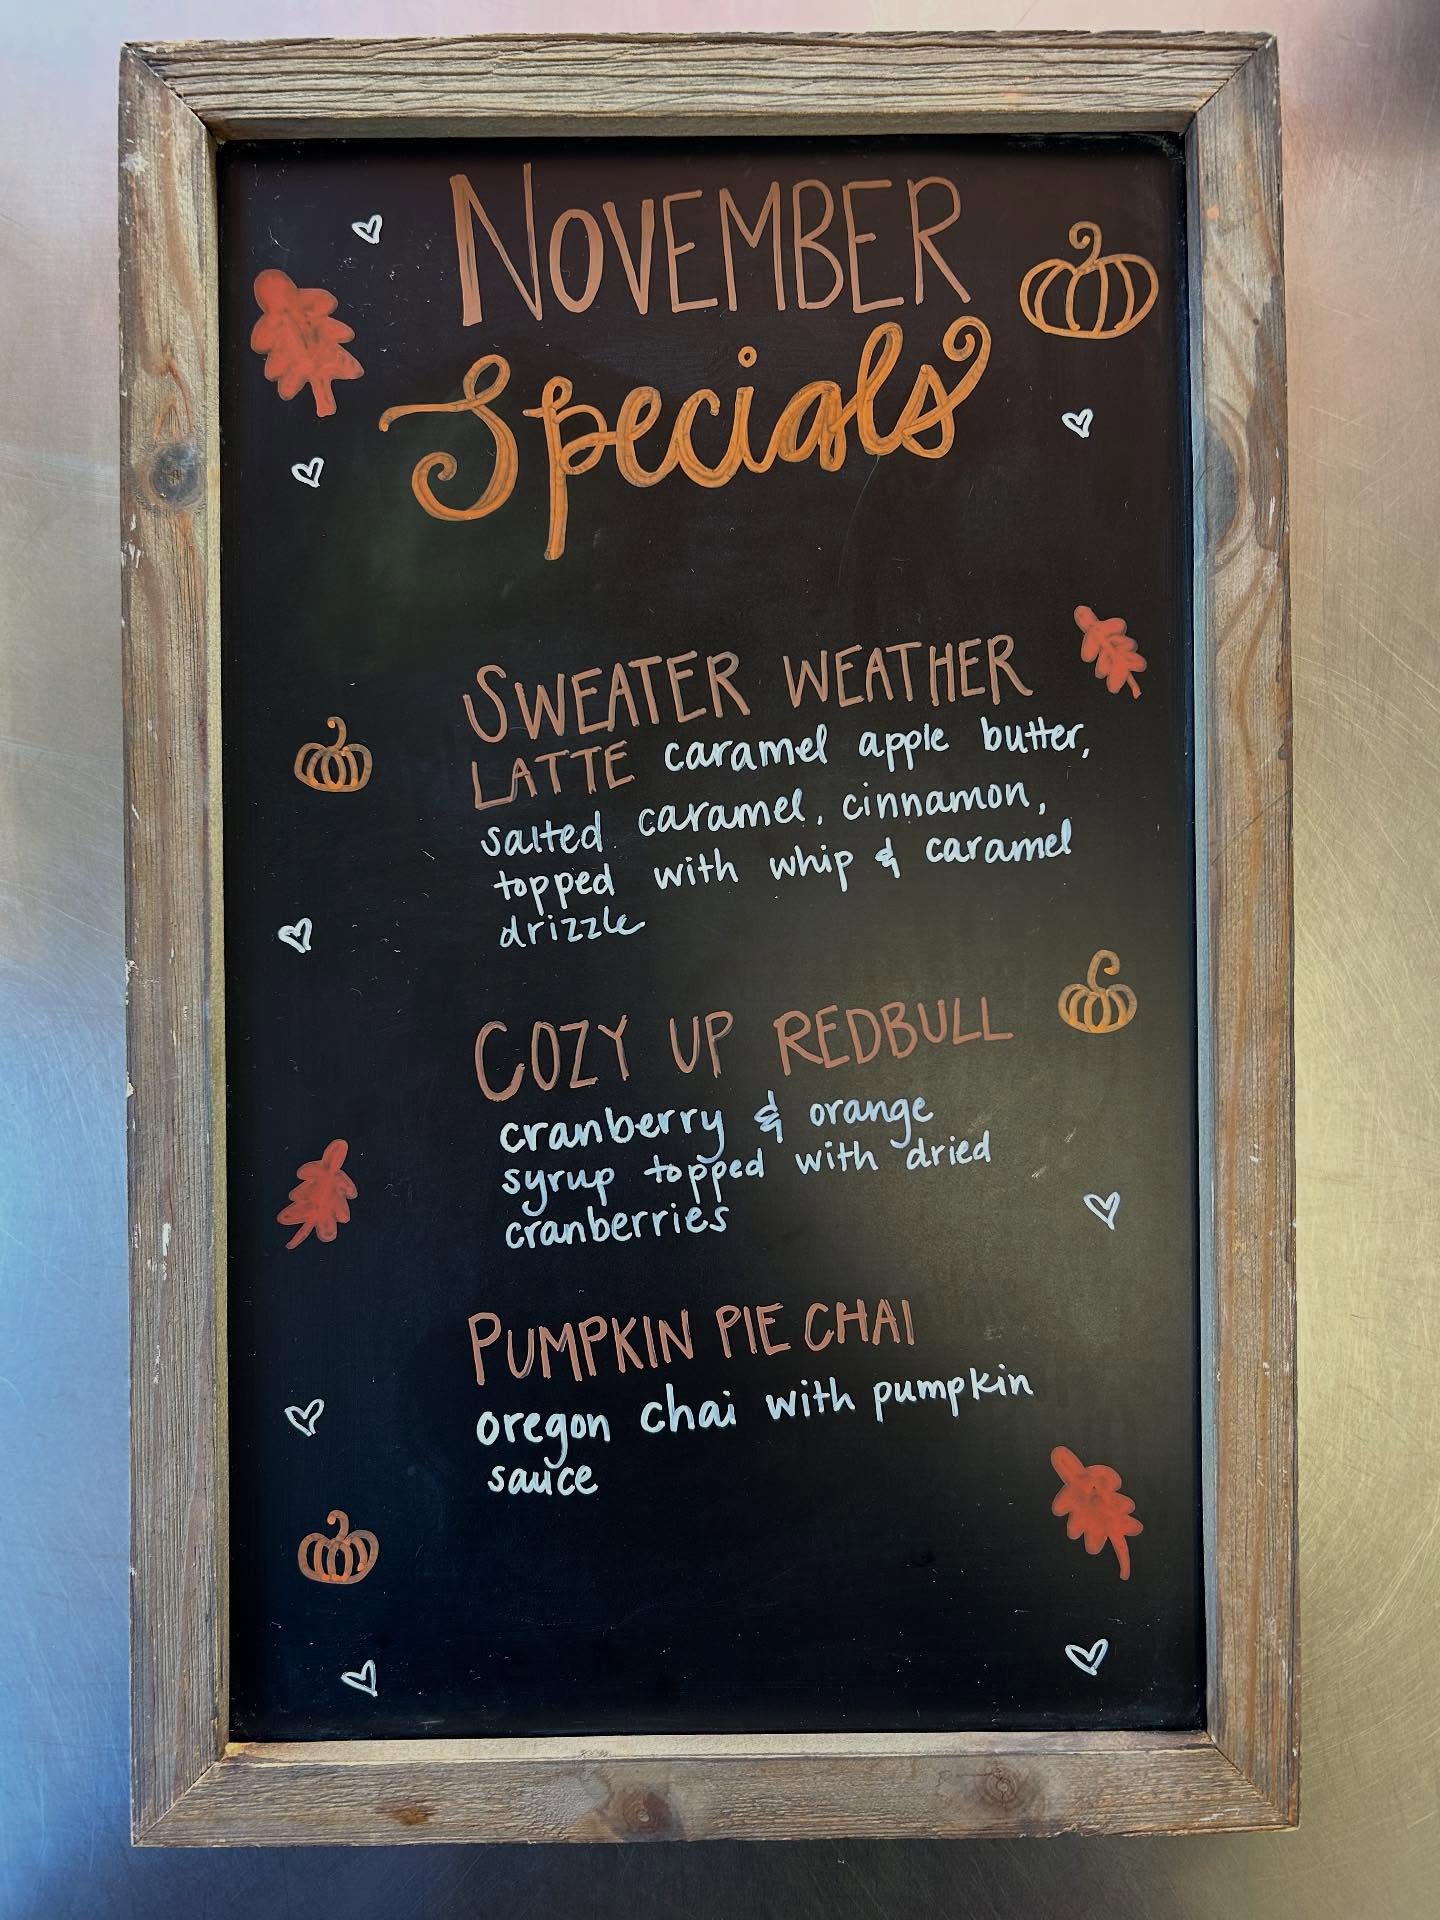 NOVEMBER
Specials
SWEATER WEATHER
LATTE caramel apple butter,
salted caramel, cinnamon,
topped with whip & caramel
drizzle
COZY UP REDBULL
cranberry & orange
syrup topped with dried
cranberries
PUMPKIN PIE CHAI
oregon chai with pumpkin
sauce